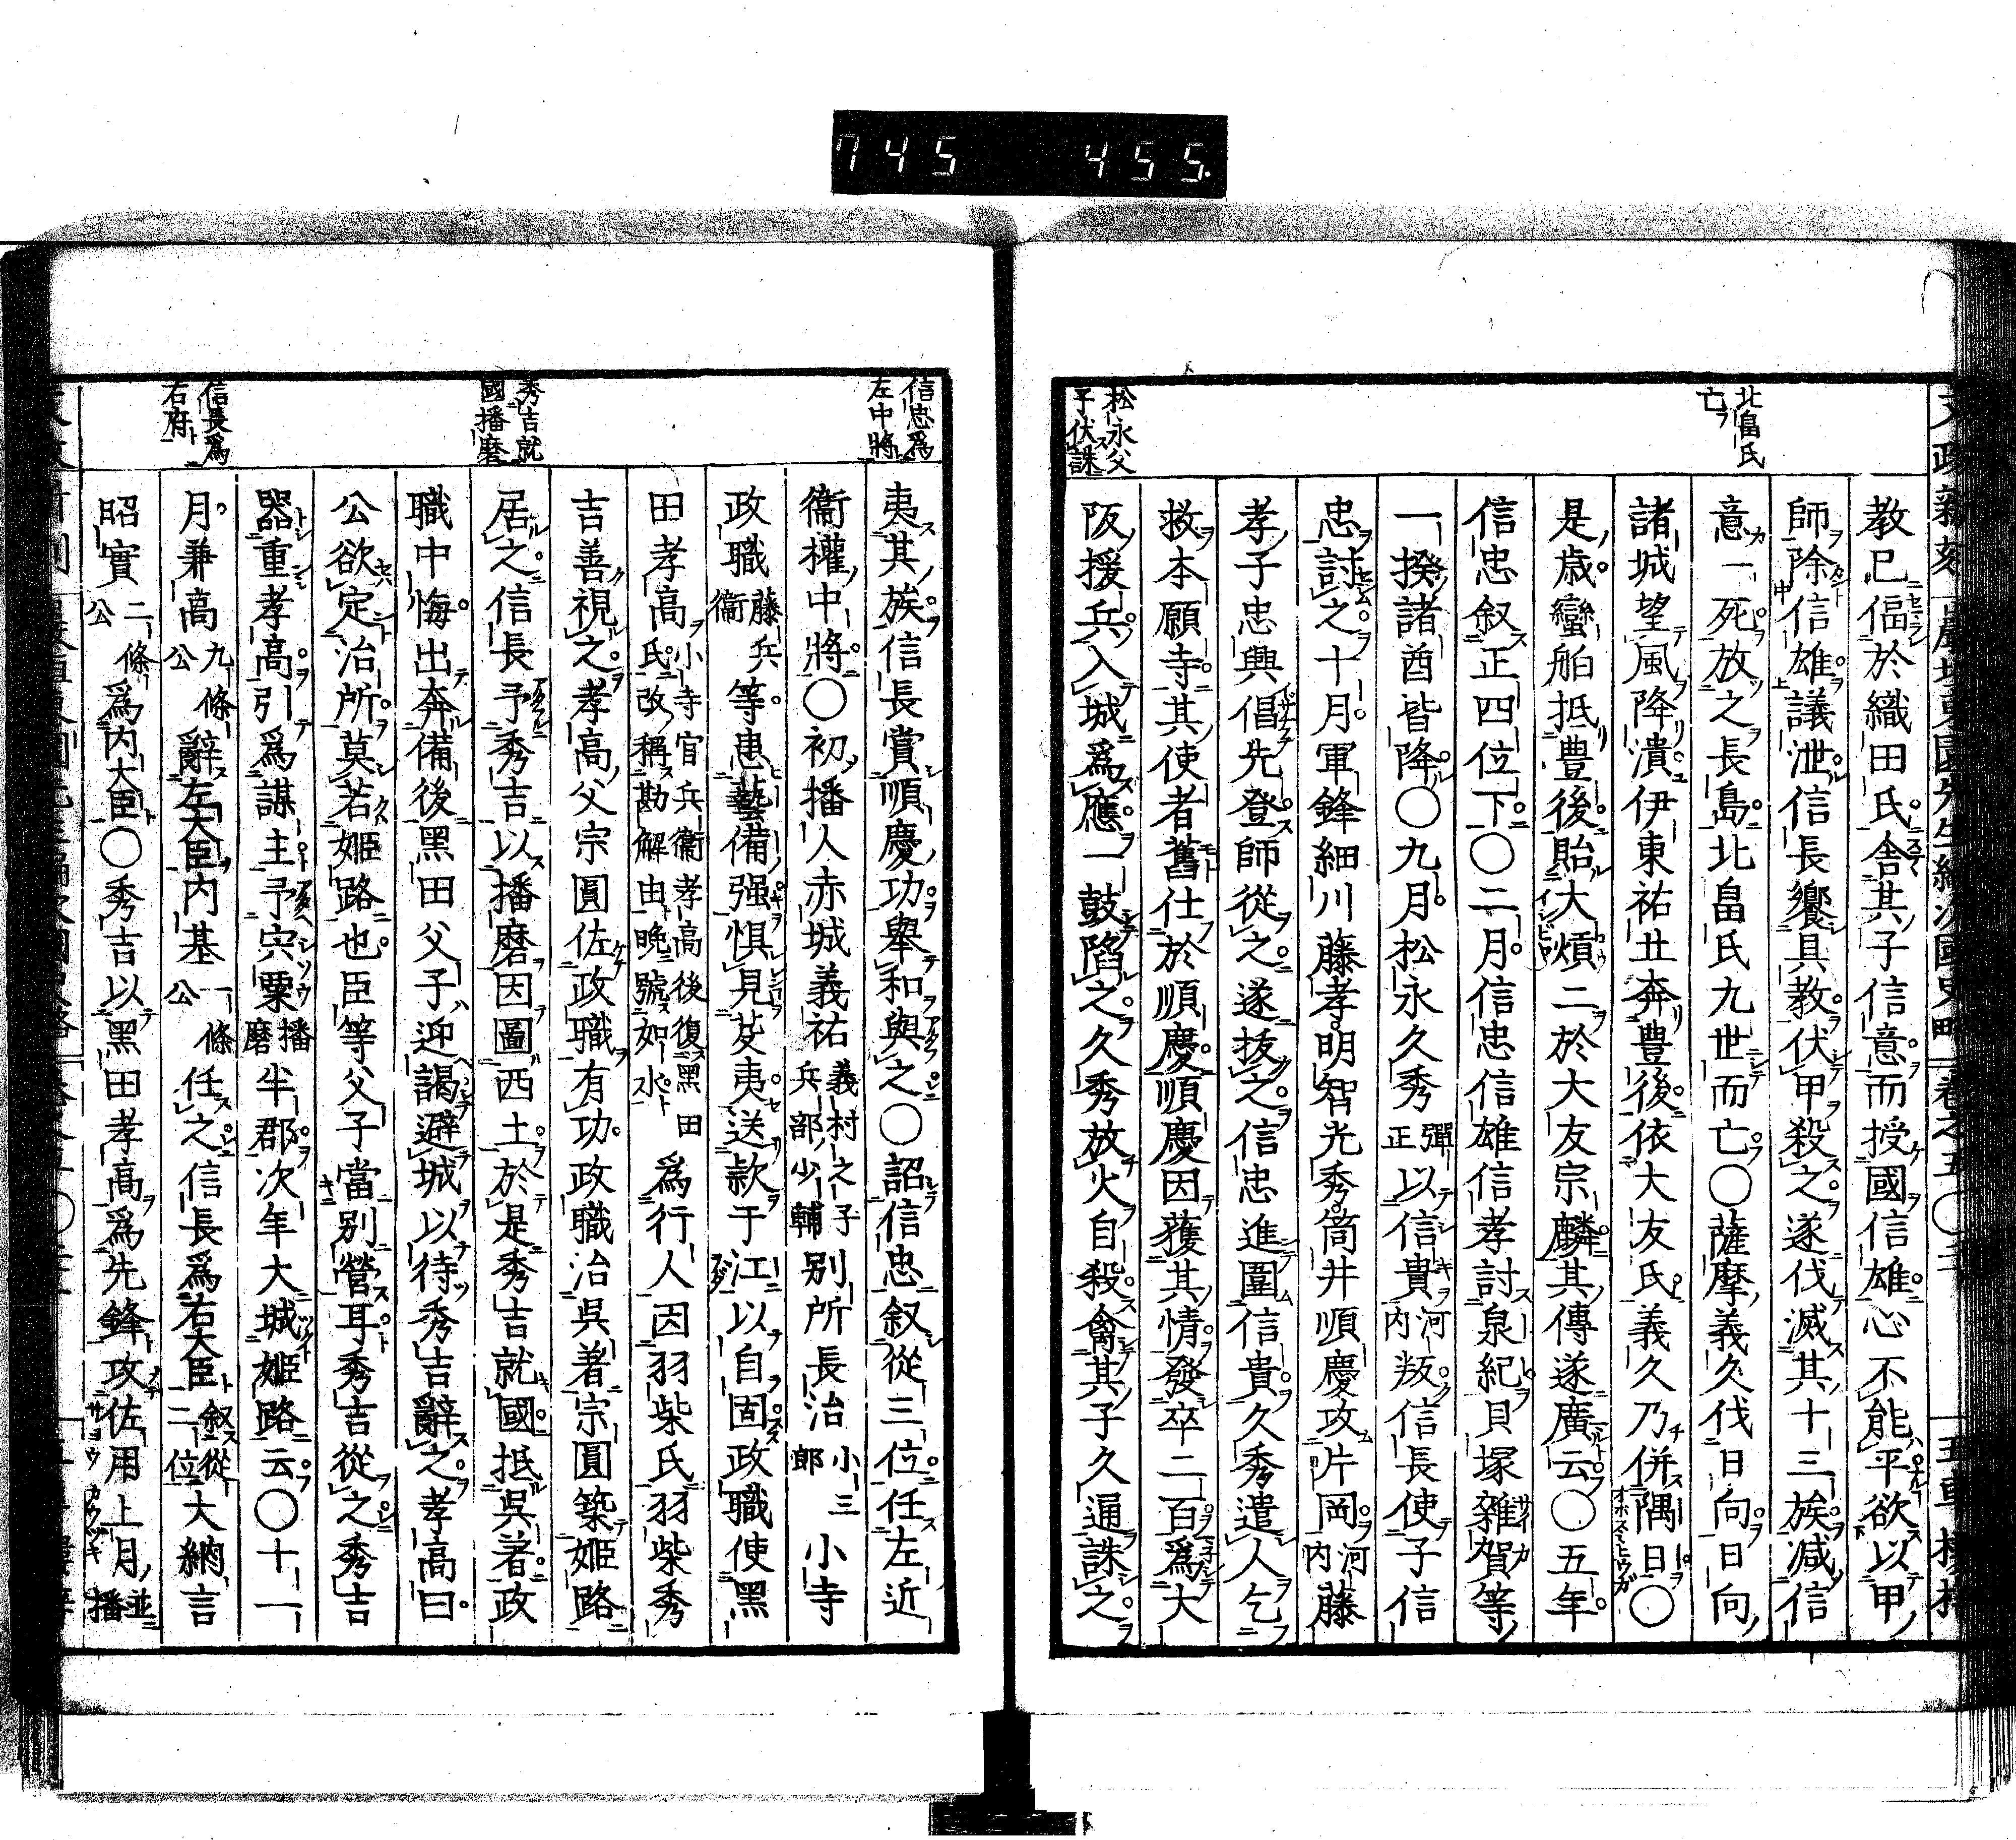 745 455.
北畠氏
亡
松永父
子伏誅
教已偪於織田氏舎其子信意而授國信雄心不能平欲以甲
師除信雄議泄信長饗具教伏甲殺之遂伐滅其十三族減信
意一死放之長島北畠氏九世而亡〇薩摩義久伐日向日向
諸城望風降潰伊東祐丑奔豊後依大友氏義久乃併隅日〇
是歳蠻舶抵豊後貽大熕二於大友宗麟其傳遂廣云〇五年
信忠叙正四位下〇二月信忠信雄信孝討泉紀貝塚雑賀等
一揆諸酋皆降〇九月松永久秀彈正以信貴河内叛信長使子信
忠討之十月軍鋒細川藤孝明智光秀筒井順慶攻片岡河内藤
孝子忠興倡先登師從之遂抜之信忠進圍信貴久秀遣人乞
救本願寺其使者舊仕於順慶順慶因獲其情發卒二百爲大
阪援兵入城爲應一鼓陷之久秀放火自殺禽其子久通誅之
信忠爲
左中將
秀吉就
國播磨
信長爲
右府
夷其族信長賞順慶功舉和與之〇詔信忠叙從三位任左近
衞權中將〇初播人赤城義祐義村之子兵部少輔別所長治小三郎小寺
政職藤兵衞等患藝備强惧見芟夷送款于江以自固政職使黑
田孝高小寺官兵衞孝高後復黑田氏改稱勘解由晩號如水爲行人因羽柴氏羽柴秀
吉善視之孝高父宗圓佐政職有功政職治呉着宗圓築姫路
居之信長予秀吉以播磨因圖西土於是秀吉就國抵呉着政
職中悔出奔備後黑田父子迎謁避城以待秀吉辭之孝高曰
公欲定治所莫若姫路也臣等父子當別營耳秀吉從之秀吉
器重孝高引爲謀主予宍粟播磨半郡次年大城姫路云〇十一
月兼高九條公辭左大臣内基一條公任之信長爲右大臣叙從二位大納言
昭實二條公爲内大臣〇秀吉以黑田孝高爲先鋒攻佐用上月並播